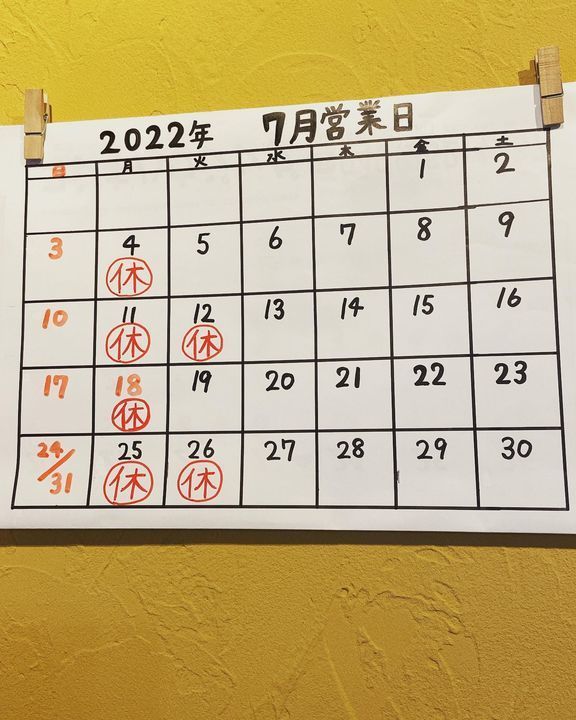 2022年 7月営業日
日 月 火 水 木 金 土
1 2
3 4 5 6 7 8 9
休
10 11 12 13 14 15 16
休 休
17 18 19 20 21 22 23
休
24/31 25 26 27 28 29 30
休 休